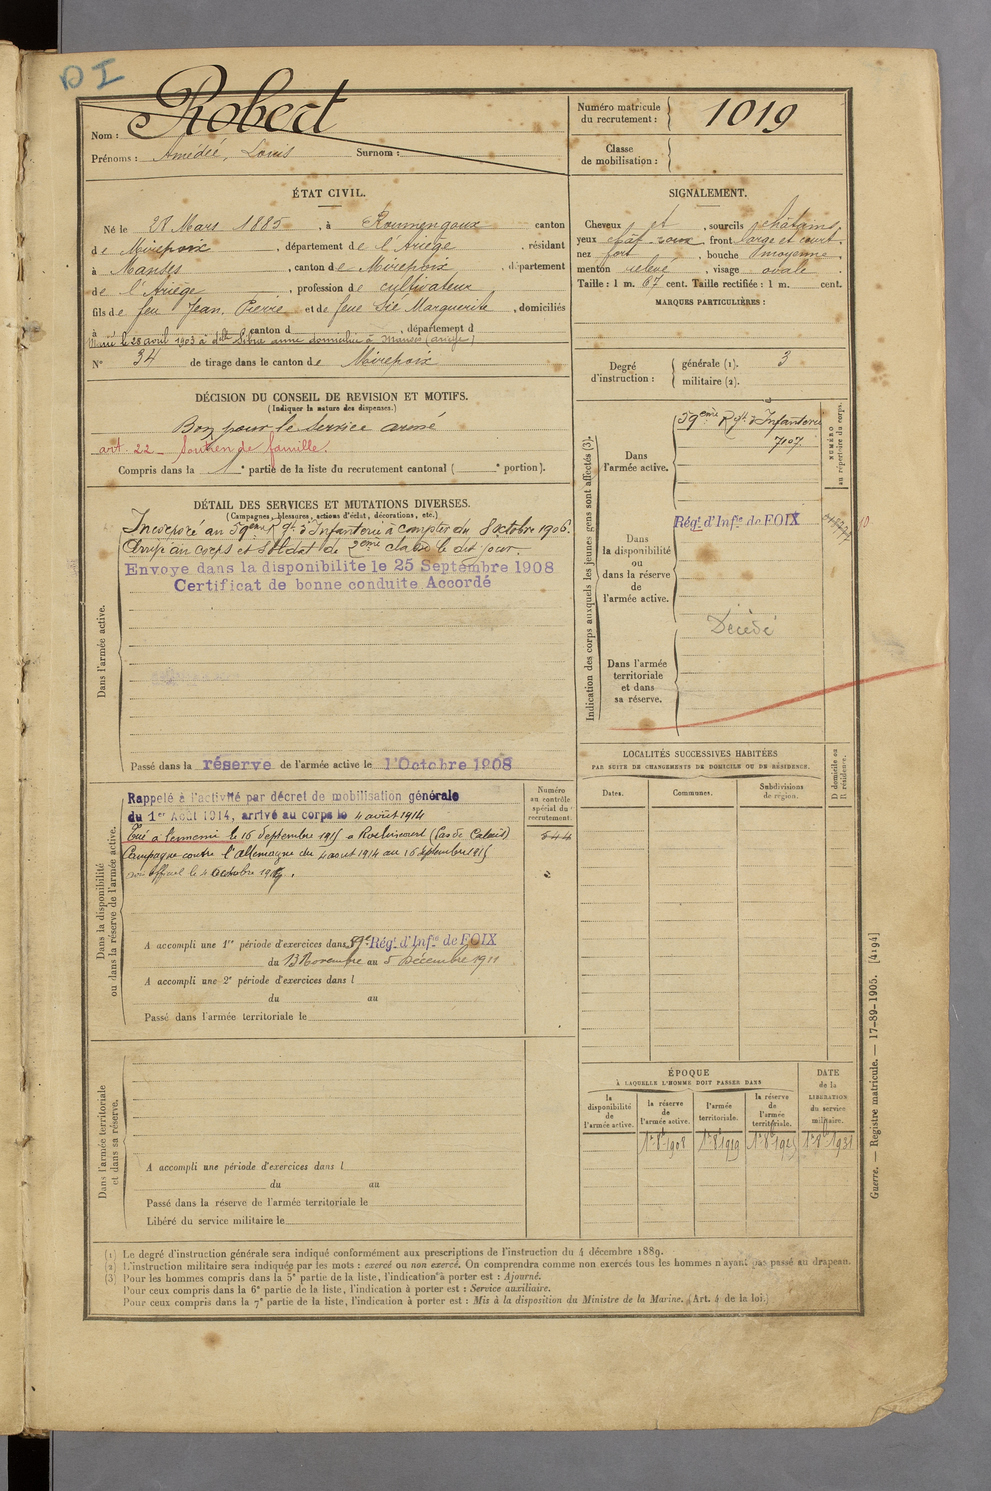 DI
Nom : Robert
Prénoms : Amédée, Louis Surnom :
Numéro matricule du recrutement : 1019
Classe de mobilisation :
ÉTAT CIVIL.
Né le 28 Mars 1885, à Roumengoux canton
de Mirepoix, département de l'Ariège, résidant
à Manses, canton de Mirepoix, département
de l'Ariège, profession de cultivateur
fils de feu Jean, Pierre et de feue Sié Marguerite, domiciliés
à canton d , département d
Marié le 28 avril 1903 à dlle Sibra anne domicilié à Manses (ariège)
N° 34 de tirage dans le canton de Mirepoix
SIGNALEMENT.
Cheveux et , sourcils châtains,
yeux chât. roux, front large et court,
nez fort, bouche moyenne,
menton relevé, visage ovale.
Taille : 1 m. 67 cent. Taille rectifiée : 1 m. cent.
MARQUES PARTICULIÈRES :
Degré d'instruction : générale (1). 3
militaire (2).
DÉCISION DU CONSEIL DE REVISION ET MOTIFS.
(Indiquer la nature des dispenses.)
Bon pour le Service armé
art. 22 _ Soutien de famille.
Compris dans la 1e partie de la liste du recrutement cantonal ( e portion).
DÉTAIL DES SERVICES ET MUTATIONS DIVERSES.
(Campagnes, blessures, actions d'éclat, décorations, etc.)
Dans l'armée active.
Incorporé au 59eme Rgt d'Infanterie à compter du 8 octobre 1906.
Arrivé au corps et soldat de 2eme classe le dit jour.
Envoye dans la disponibilite le 25 Septembre 1908
Certificat de bonne conduite Accordé
Passé dans la réserve de l'armée active le 1'Octobre 1908
Indication des corps auxquels les jeunes gens sont affectés (3).
NUMÉRO au répertoire du corps.
Dans l'armée active.
59eme Rgt d'Infanterie
7107
Dans la disponibilité ou dans la réserve de l'armée active.
Régt d'Infie de FOIX
Dans l'armée territoriale et dans sa réserve.
Décédé
Dans la disponibilité ou dans la réserve de l'armée active.
Numéro au contrôle spécial du recrutement.
Rappelé à l'activité par décret de mobilisation générale
du 1er Août 1914, arrivé au corps le 4 août 1914
Tué à l'ennemi le 16 Septembre 1915 à Roclincourt (Pas de Calais)
Campagne contre l'Allemagne du 4 aout 1914 au 16 septembre 1915
officiel le 4 octobre 1915.
544
A accompli une 1re période d'exercices dans 59e Régt d'Infie de FOIX
du 13 Novembre au 5 Décembre 1911
A accompli une 2e période d'exercices dans l
du au
Passé dans l'armée territoriale le
LOCALITÉS SUCCESSIVES HABITÉES
PAR SUITE DE CHANGEMENTS DE DOMICILE OU DE RÉSIDENCE.
Dates. Communes. Subdivisions de région. D domicile ou R résidence.
ÉPOQUE
À LAQUELLE L'HOMME DOIT PASSER DANS
la disponibilité de l'armée active.
la réserve de l'armée active.
l'armée territoriale.
la réserve de l'armée territoriale.
DATE de la LIBÉRATION du service militaire.
Dans l'armée territoriale et dans sa réserve.
A accompli une période d'exercices dans l
du au
Passé dans la réserve de l'armée territoriale le
Libéré du service militaire le
(1) Le degré d'instruction générale sera indiqué conformément aux prescriptions de l'instruction du 4 décembre 1889.
(2) L'instruction militaire sera indiquée par les mots : exercé ou non exercé. On comprendra comme non exercés tous les hommes n'ayant pas passé au drapeau.
(3) Pour les hommes compris dans la 5e partie de la liste, l'indication à porter est : Ajourné.
Pour ceux compris dans la 6e partie de la liste, l'indication à porter est : Service auxiliaire.
Pour ceux compris dans la 7e partie de la liste, l'indication à porter est : Mis à la disposition du Ministre de la Marine. (Art. 4 de la loi.)
Guerre. — Registre matricule. — 17-89-1905. [4194]